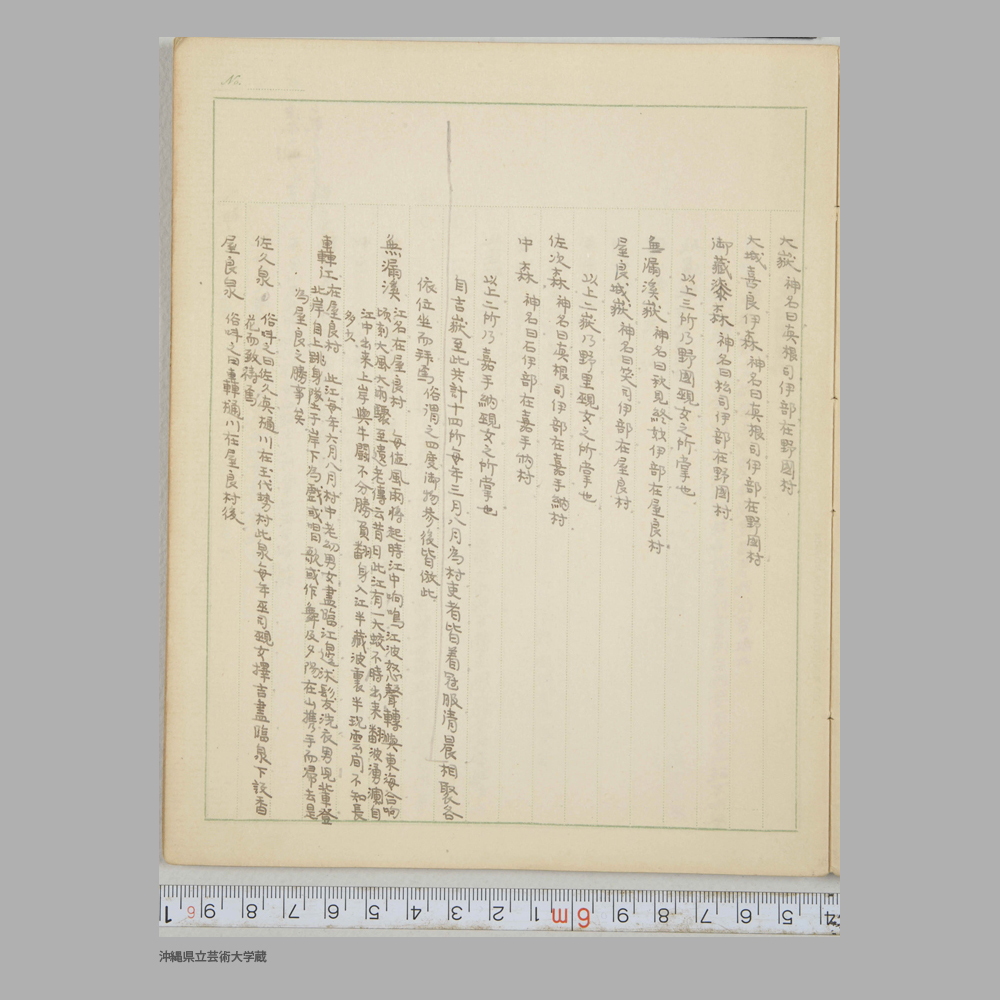 大嶽 神名曰真根司伊部在野國村
大城喜良伊森 神名曰真根司伊部在野國村
御藏漆森 神名曰松司伊部在野國村
以上三所乃野國覡女之所掌也
無漏溪嶽 神名曰秋見終奴伊部在屋良村
屋良城嶽 神名曰笑司伊部在屋良村
以上二嶽乃野里覡女之所掌也
佐次森 神名曰真根司伊部在嘉手納村
中森 神名曰石伊部在嘉手納村
以上二所乃嘉手納覡女之所掌也
自吉嶽至此共計十四所每年三月八月為村吏者皆着冠服清晨相聚各
依位坐而拜焉 俗謂之四度御物參後皆倣此
無漏溪 江名在屋良村 每值風雨將起時江中响鳴江波怒聲轉與東海合响
頃刻大風大雨驟至遺老傳云昔日此江有一大蛟不時出来翻波湧瀾自
江中出来上岸與牛鬪不分勝負翻身入江半藏波裏半現雲間不知長
多少
轟江 在屋良村 此江每年六月八月村中老幼男女盡臨江邊沐髮洗衣男児輩登
北岸自上跳身墜于岸下為戲或唱歌或作舞及夕陽在山携手而歸去是
為屋良之勝事矣
佐久泉 俗呼之曰佐久真樋川在玉代勢村此泉每年巫司覡女擇吉盡臨泉下設香
花而致禱焉
屋良泉 俗呼之曰轟樋川在屋良村後
No.
1 6 9 8 7 6 5 4 3 2 1 6m 9 8 7 6 5 4
沖縄県立芸術大学蔵